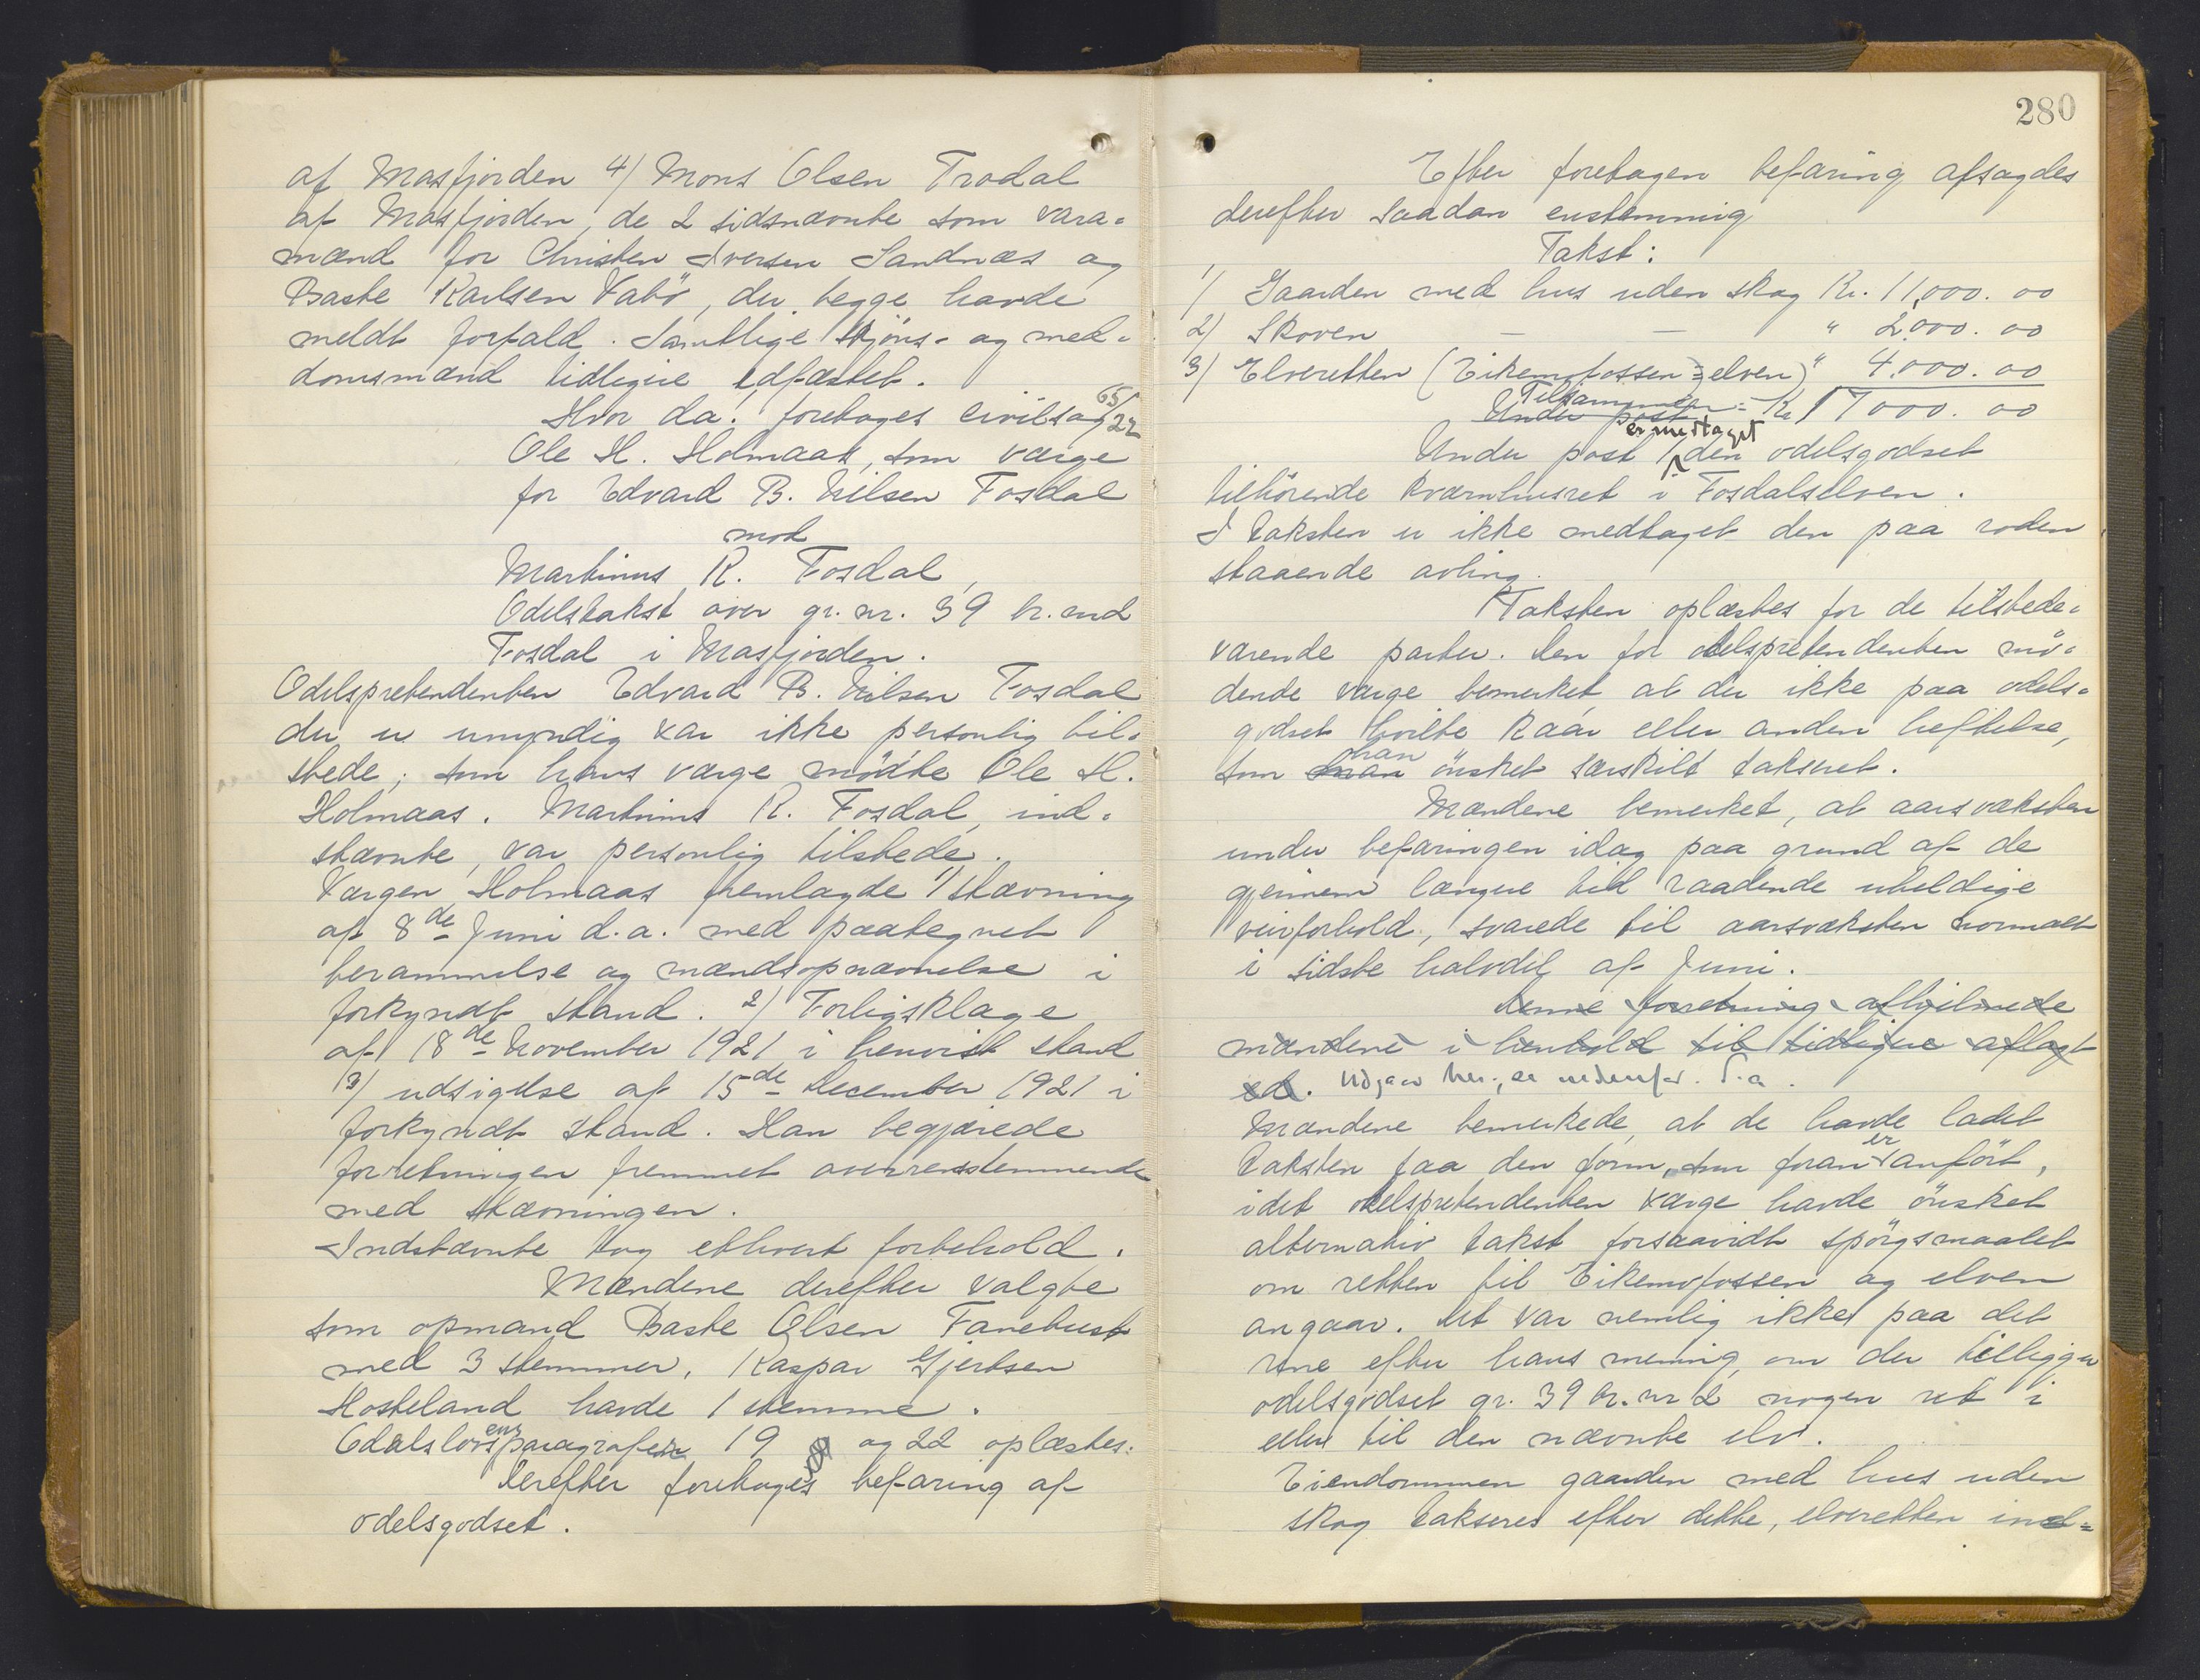 af Masfjorden 4/ Mons Olsen Trodal
af Masfjorden, de 2 sidsnævnte som vara-
mænd for Christen Iversen Sandnæs og
Baste Karlsen Vabö, der begge havde
meldt forfald. Samtlige skjöns- og med-
domsmænd tidligere edfæstet.
Hvor da: foretoges civilsag 65/22
Ole H. Holmaas, som værge
for Edvard B. Nilsen Fosdal
mod
Martinus R. Fosdal,
Odelstakst over gr. nr. 39 br. nr 2
Fosdal i Masfjorden.
Odelspretendenten Edvard B. Nilsen Fosdal
der er umyndig var ikke personlig til-
stede; som hans værge mödte Ole H.
Holmaas. Martinus R. Fosdal, ind-
stævnte, var personlig tilstede.
Værgen Holmaas fremlagde 1/ stævning
af 8de Juni d.a. med paategnet
berammelse og mændsopnævnelse i
forkyndt stand. 2/ Forligsklage
af 18de November 1921 i henvist stand
3/ udsigelse af 15de December 1921 i
forkyndt stand. Han begjærede
forretningen fremmet overensstemmende
med stævningen.
Indstævnte tog ethvert forbehold.
Mændene derefter valgte
som opmand Baste Olsen Fanebust
med 3 stemmer. Kaspar Gjertsen
Hosteland havde 1 stemme.
Odelslovens paragrafer 19 og 22 oplæstes.
Derefter foretoges befaring af
odelsgodset.
280
Efter foretagen befaring afsagdes
derefter saadan enstemmig
Takst:
1/ Gaarden med hus uden skog Kr. 11,000.00
2/ Skoven — — " 2,000.00
3/ Elveretten (Eikemofossen = elven) " 4.000.00
Under post Tilsammen = Kr 17000.00
Under post 1 er medtaget den odelsgodset
tilhörende kværnhusret i Fosdalselven.
I taksten er ikke medtaget den paa roden
staaende avling.
Taksten oplæstes for de tilstede-
værende parter. Den for odelspretendenten mö-
dende værge bemerket at der ikke paa odels-
godset hvilte kaar eller anden heftelse,
som han önsket særskilt takseret.
Mændene bemerket, at aarsvæksten
under befaringen idag paa grund af de
gjennem længere tid raadende uheldige
veirforhold, svarede til aarsvæksten normalt
i sidste halvdel af Juni.
Denne forretning afhjelmede
mændene i henhold til tidligere aflagt
ed. Udgaar her, se nedenfor. S.a.
Mændene bemerkede, at de havde ladet
taksten faa den form, som foran er anfört,
idet odelspretendenten værge havde önsket
alternativ takst forsaavidt spörgsmaalet
om retten til Eikemofossen og elven
angaar. Det var nemlig ikke paa det
rene efter hans mening, om der tilligger
odelsgodset gr. 39 br. nr 2 nogen ret i
eller til den nævnte elv.
Eiendommen gaarden med hus uden
skog takseres efter dette, elveretten ind-